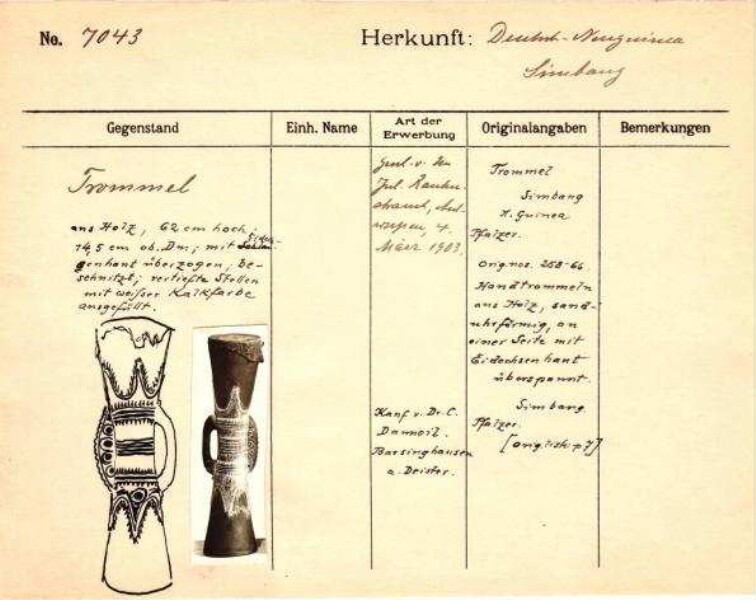 No. 7043
Herkunft: Deutsch-Neuguinea
Simbang
Gegenstand
Einh. Name
Art der
Erwerbung
Originalangaben
Bemerkungen
Trommel
aus Holz, 62 cm hoch;
14,5 cm ob. Dm; mit Eidech-
genhaut überzogen; be-
schnitzt; vertiefte Stellen
mit weißer Kalkfarbe
ausgefüllt.
März 1903.
Kauf v. Dr. C.
Barsinghausen
a. Deister.
Trommel
Simbang
N. Guinea
Pfalzer.
Orig. nos. 258-66.
Handtrommeln
aus Holz, sand-
uhrförmig, an
einer Seite mit
Eidechsenhaut
überspannt.
Simbang.
Pfalzer.
[orig. list. p 7]